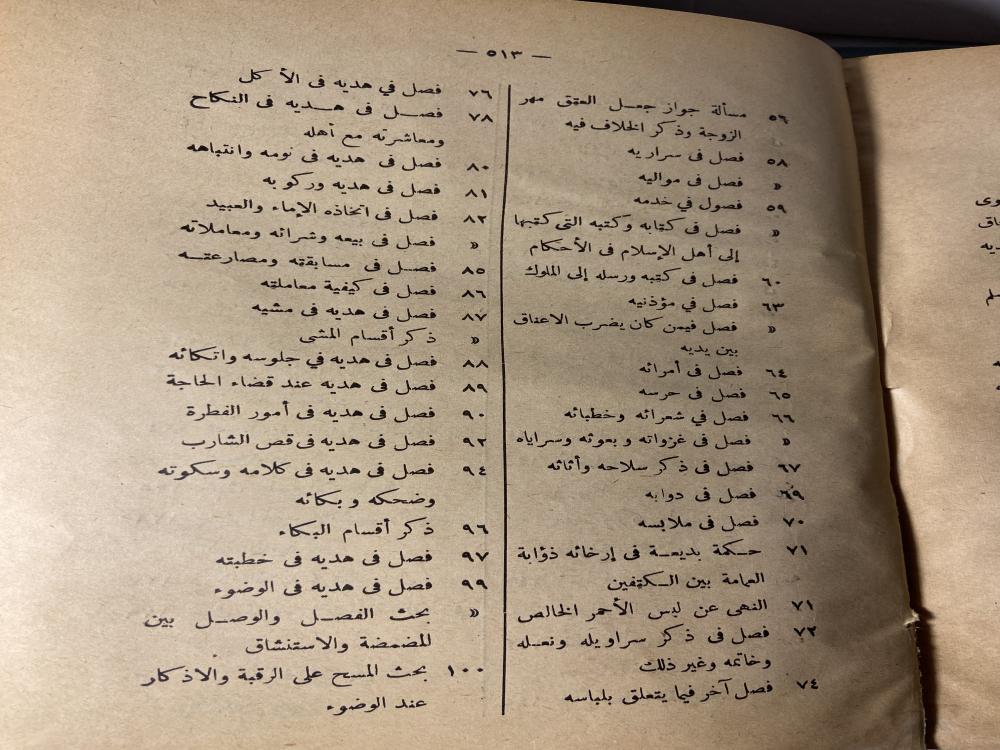 — ٥١٣ —
٥٦ مسألة جواز جعل العتق مهر
الزوجة وذكر الخلاف فيه
٥٨ فصل فى سراريه
« فصل فى مواليه
٥٩ فصول في خدمه
« فصل فى كتابه وكتبه التى كتبها
إلى أهل الإسلام فى الأحكام
٦٠ فصل فى كتبه ورسله إلى الملوك
٦٣ فصل في مؤذنيه
« فصل فيمن كان يضرب الاعناق
بين يديه
٦٤ فصل فى أمرائه
٦٥ فصل فى حرسه
٦٦ فصل في شعرائه وخطبائه
« فصل فى غزواته وبعوثه وسراياه
٦٧ فصل فى ذكر سلاحه وأثاثه
٦٩ فصل فى دوابه
٧٠ فصل فى ملابسه
٧١ حكمة بديعة فى إرخائه ذؤابة
العمامة بين الكتفين
٧١ النهى عن لبس الأحمر الخالص
٧٢ فصل فى ذكر سراويله ونعله
وخاتمه وغير ذلك
٧٤ فصل آخر فيما يتعلق بلباسه
٧٦ فصل في هديه فى الأكل
٧٨ فصل فى هديه فى النكاح
ومعاشرته مع أهله
٨٠ فصل فى هديه فى نومه وانتباهه
٨١ فصل فى هديه وركوبه
٨٢ فصل فى اتخاذه الإماء والعبيد
« فصل فى بيعه وشرائه ومعاملاته
٨٥ فصل فى مسابقته ومصارعته
٨٦ فصل فى كيفية معاملته
٨٧ فصل فى هديه فى مشيه
« ذكر أقسام المشى
٨٨ فصل فى هديه في جلوسه واتكائه
٨٩ فصل فى هديه عند قضاء الحاجة
٩٠ فصل فى هديه فى أمور الفطرة
٩٢ فصل فى هديه فى قص الشارب
٩٤ فصل فى هديه فى كلامه وسكوته
وضحكه وبكائه
٩٦ ذكر أقسام البكاء
٩٧ فصل فى هديه فى خطبته
٩٩ فصل فى هديه فى الوضوء
« بحث الفصل والوصل بين
المضمضة والاستنشاق
١٠٠ بحث المسح على الرقبة والاذكار
عند الوضوء